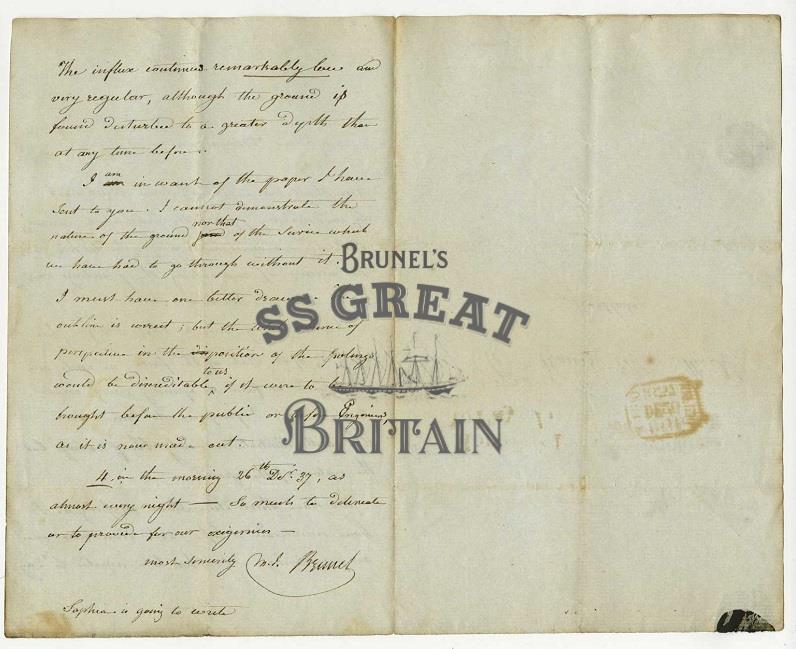 The influx continues remarkably low and
very regular, although the ground is
found disturbed to a greater depth than
at any time before.
I am in want of the paper I have
sent to you. I cannot demonstrate the
nor that
nature of the ground of the service which
we have had to go through without it.
I must have one better
outline is correct; but the of
perspective in the disposition of the
to us
would be discreditable if it were to be
brought before the public or Engineers,
as it is now made out.
4 in the morning 26th Decr. 37, as
almost every night — So much to delineate
or to provide for our exigencies —
most sincerely M. I. Brunel
Sophia is going to write
BRUNEL'S
SS GREAT
BRITAIN